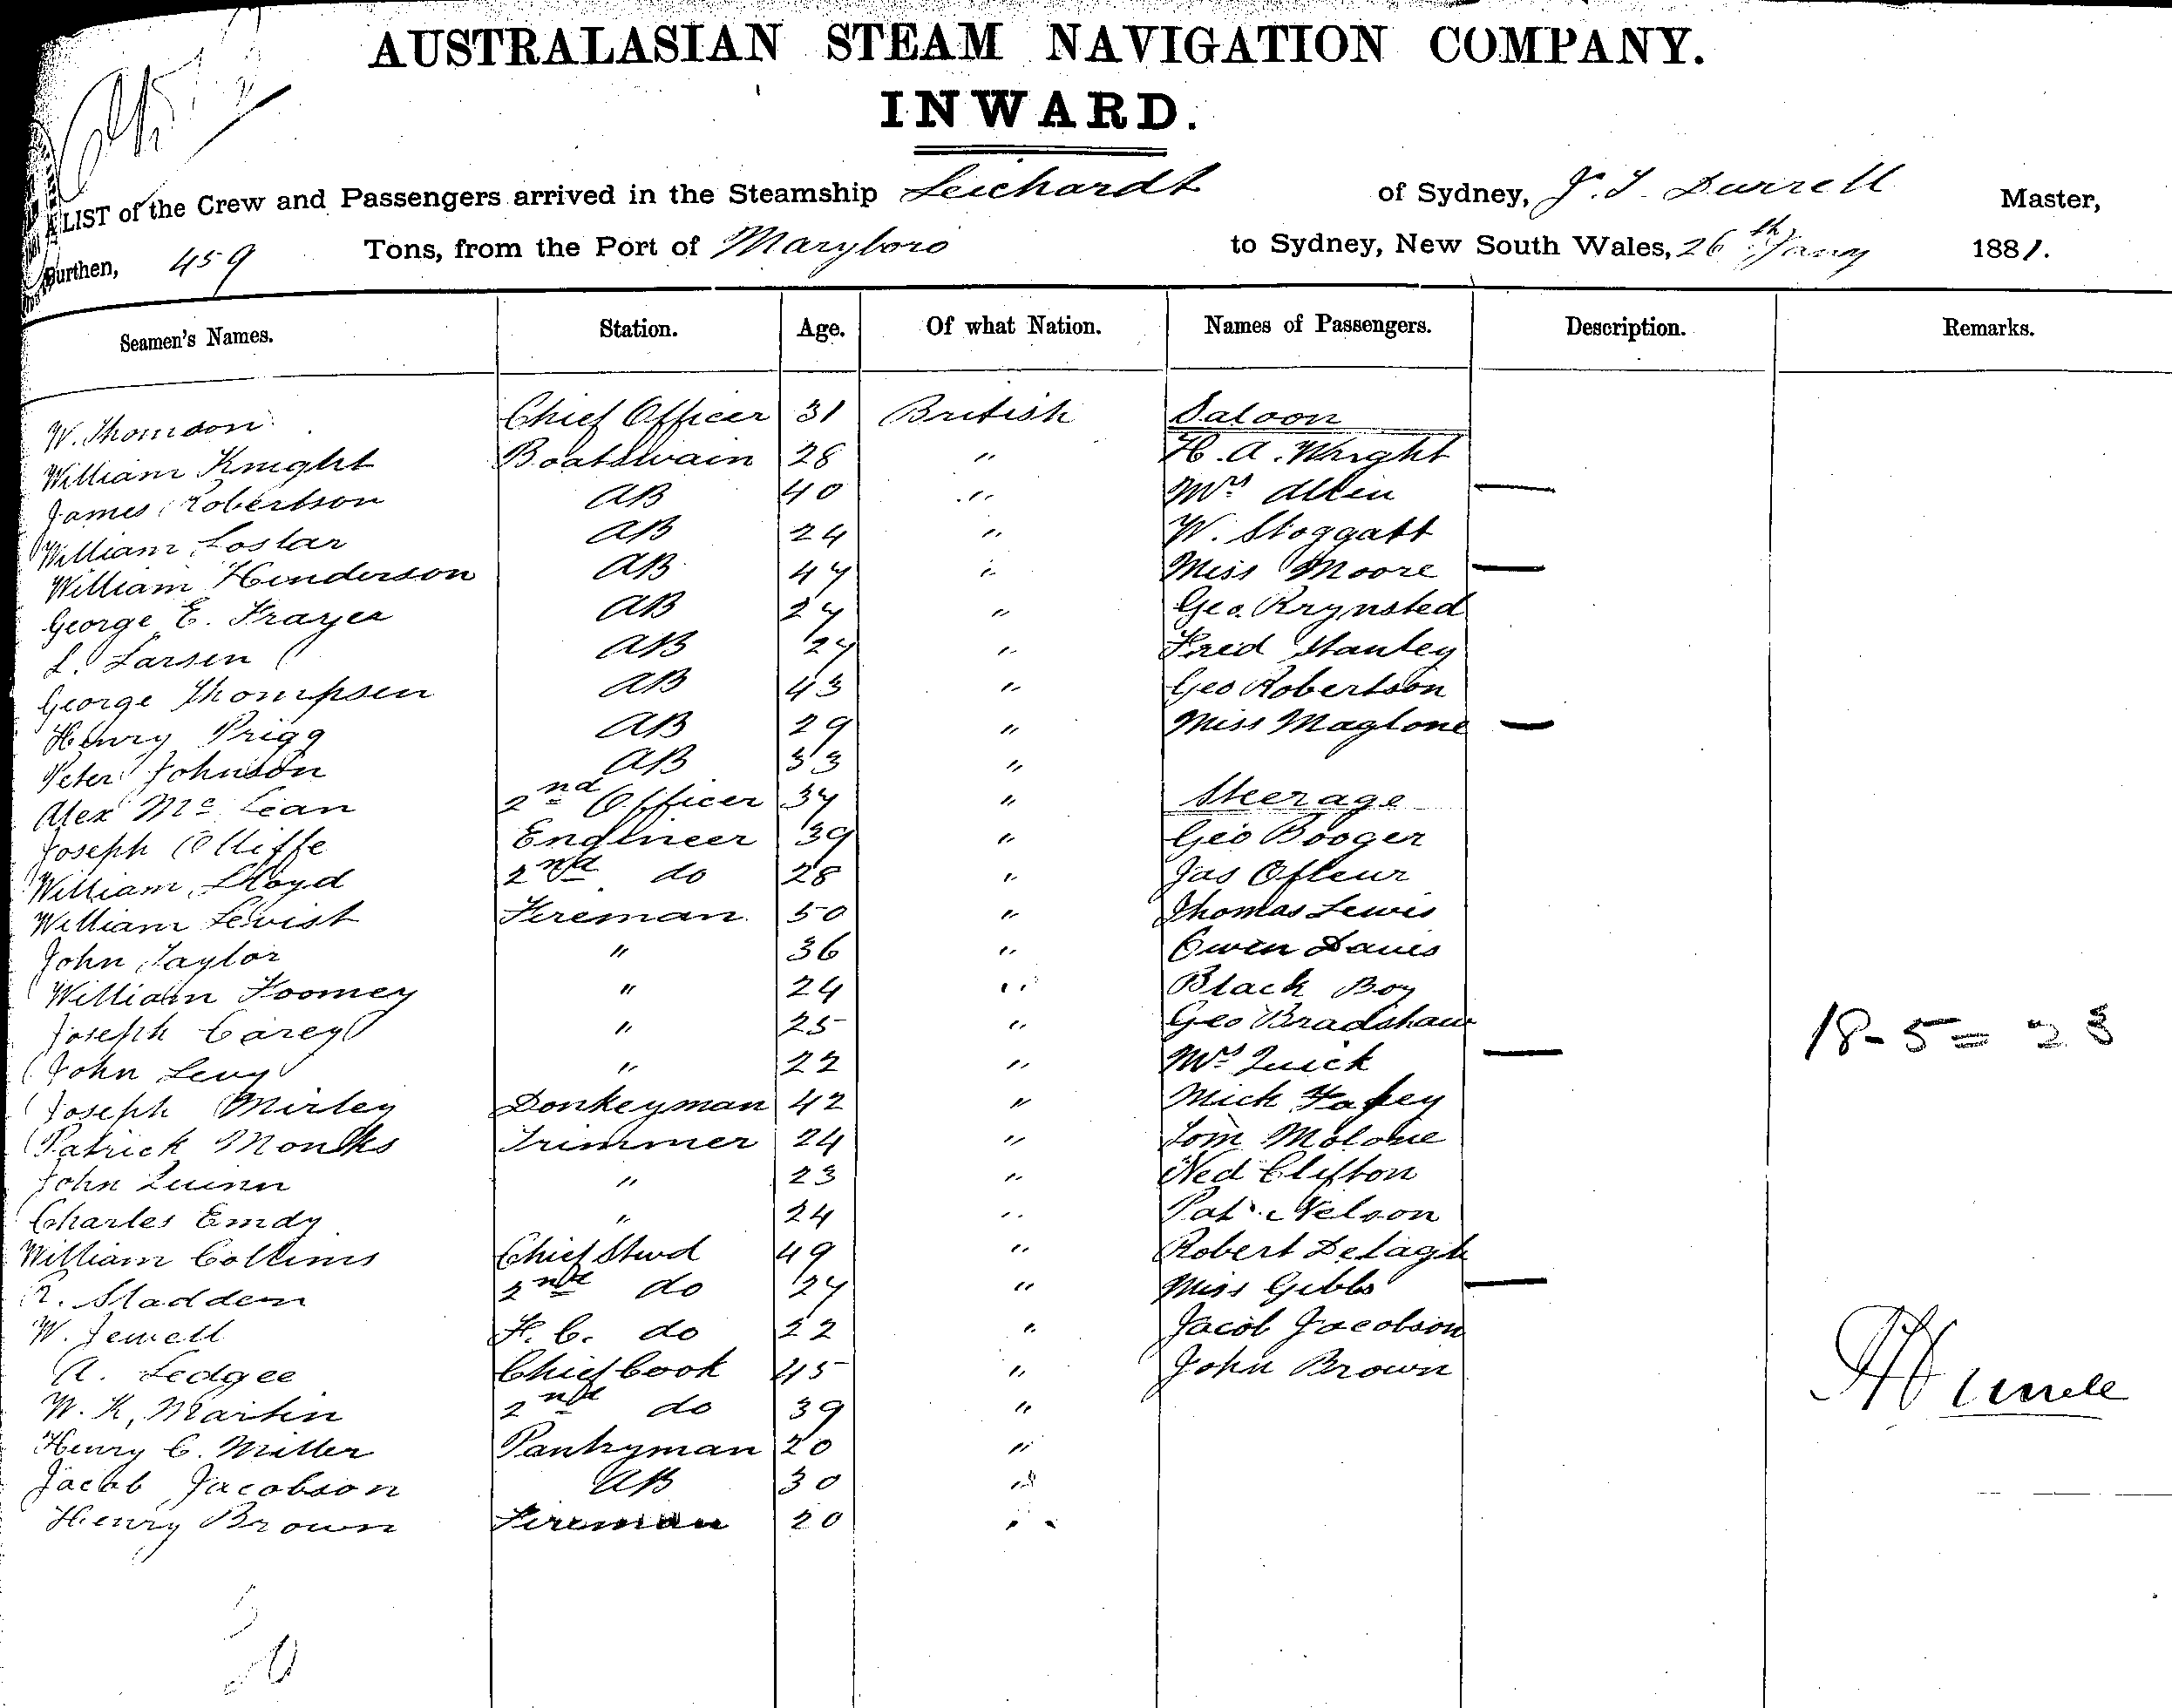 AUSTRALASIAN STEAM NAVIGATION COMPANY.
INWARD.
A LIST of the Crew and Passengers arrived in the Steamship Leichardt of Sydney, J. T. Durrell Master,
Burthen, 459 Tons, from the Port of Maryboro to Sydney, New South Wales, 26th Jany 1881.
Seamen's Names. Station. Age. Of what Nation. Names of Passengers. Description. Remarks.
W. Thomson Chief Officer 31 British Saloon
William Knight Boatswain 28 " H. A. Wright
James Robertson AB 40 " Mrs Allen —
William Loslar AB 24 " W. Stoggatt
William Henderson AB 44 " Miss Moore —
George E. Frayer AB 24 " Geo. Rrynsted
L. Larsen AB 24 " Fred Stanley
George Thompsen AB 43 " Geo Robertson
Henry Prigg AB 29 " Miss Maglone —
Peter Johnson AB 33 "
Alex Mc Lean 2nd Officer 34 " Steerage
Joseph Olliffe Engineer 39 " Geo Booger
William Lloyd 2nd do 28 " Jas Ofleur
William Levist Fireman 50 " Thomas Lewis
John Taylor " 36 " Owen Davis
William Toomey " 24 " Black Boy
Joseph Carey " 25 " Geo Bradshaw
John Levy " 22 " Mrs Quick — 18-5=23
Joseph Mirley Donkeyman 42 " Mick Fahey
Patrick Monks Trimmer 24 " Tom Molone
John Quinn " 23 " Ned Clifton
Charles Emdy " 24 " Pat Nelson
William Collins Chief Stwd 49 " Robert Delagh
R. Sladden 2nd do 24 " Miss Gibbs —
W. Jewell F. C. do 22 " Jacob Jacobson
A. Ledgee Chief Cook 45 " John Brown
W. K. Martin 2nd do 39 "
Henry C. Miller Pantryman 20 "
Jacob Jacobson AB 30 "
Henry Brown Fireman 20 "